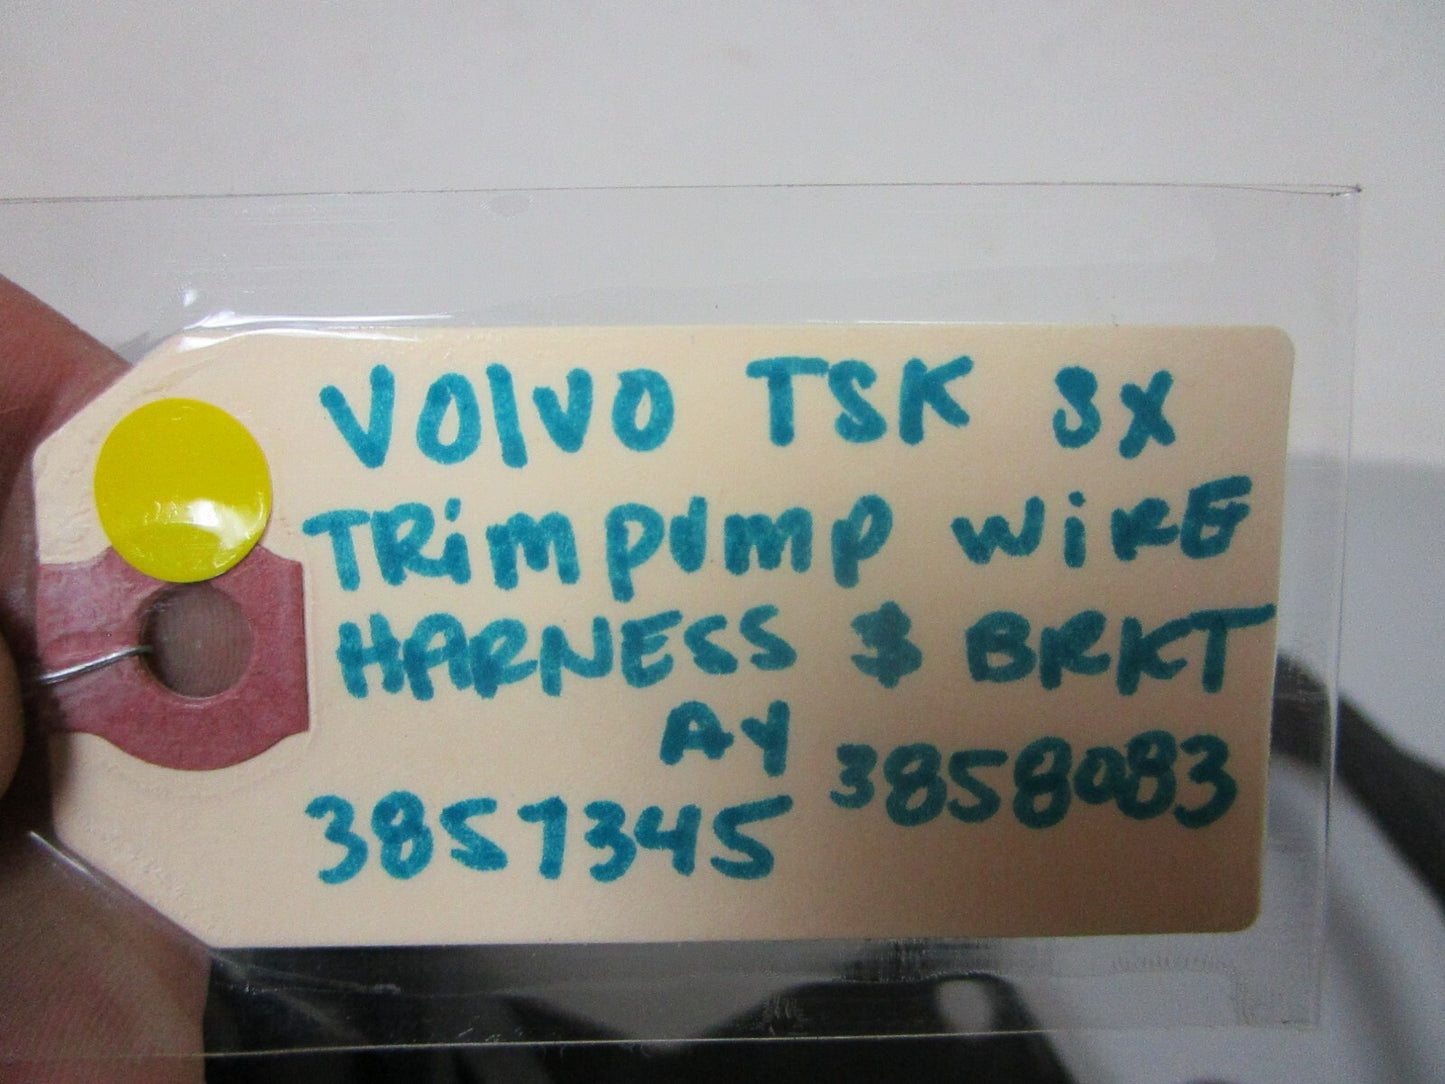 VOLVO TSK SX
TRimpump wiRE
HARNESS & BRKT
AY
3858083
3857345